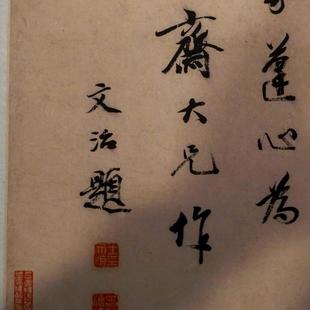 蓬心為
齋大兄作
文治題